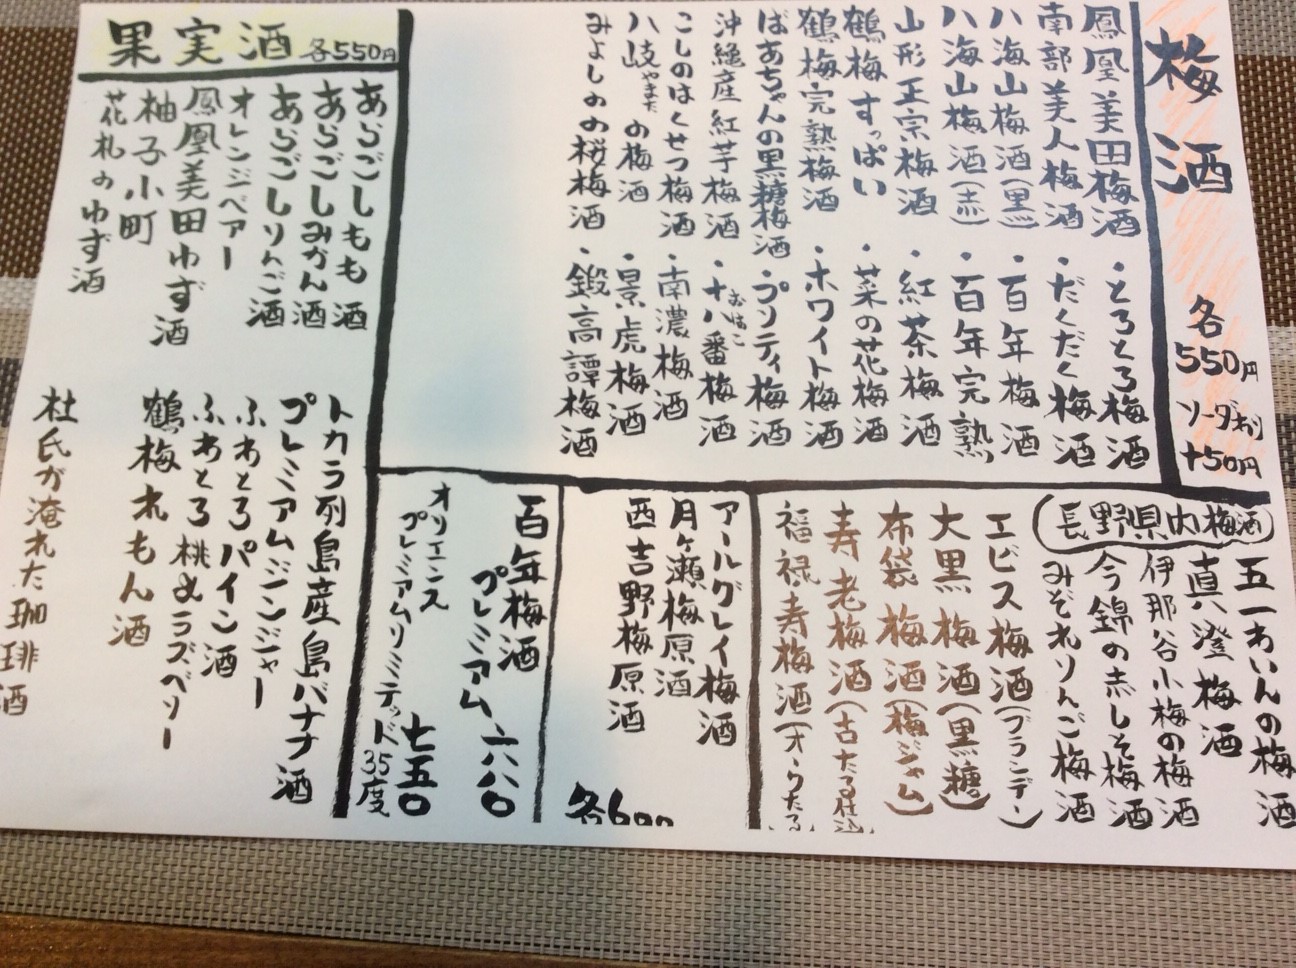 梅酒
各550円
ソーダ割り+50円
鳳凰美田梅酒
南部美人梅酒
八海山梅酒(黒)
八海山梅酒(赤)
山形正宗梅酒
鶴梅すっぱい
鶴梅完熟梅酒
ばあちゃんの黒糖梅酒
沖縄産紅芋梅酒
こしのはくせつ梅酒
八岐の梅酒
やまた
みよしのの桜梅酒
・とろとろ梅酒
・だくだく梅酒
・百年梅酒
・百年完熟
・紅茶梅酒
・菜の花梅酒
・ホワイト梅酒
・プリティ梅酒
・十八番梅酒
おはこ
・南濃梅酒
・景虎梅酒
・鍛高譚梅酒
長野県内梅酒
五一わいんの梅酒
真澄梅酒
伊那谷小梅の梅酒
今錦の赤しそ梅酒
みぞれりんご梅酒
エビス梅酒(ブランデー)
大黒梅酒(黒糖)
布袋梅酒(梅ジャム)
寿老梅酒(古たる仕込)
福禄寿梅酒(オークたる)
アールグレイ梅酒
月ヶ瀬梅原酒
西吉野梅原酒
各600
百年梅酒
プレミアム 六八〇
オリエンス
プレミアムリミテッド 七五〇
35度
果実酒 各550円
あらごしもも酒
あらごしみかん酒
あらごしりんご酒
オレンジベアー
鳳凰美田ゆず酒
柚子小町
花札のゆず酒
トカラ列島産島バナナ酒
プレミアムジンジャー
ふわとろパイン酒
ふわとろ桃&ラズベリー
鶴梅れもん酒
杜氏が淹れた珈琲酒